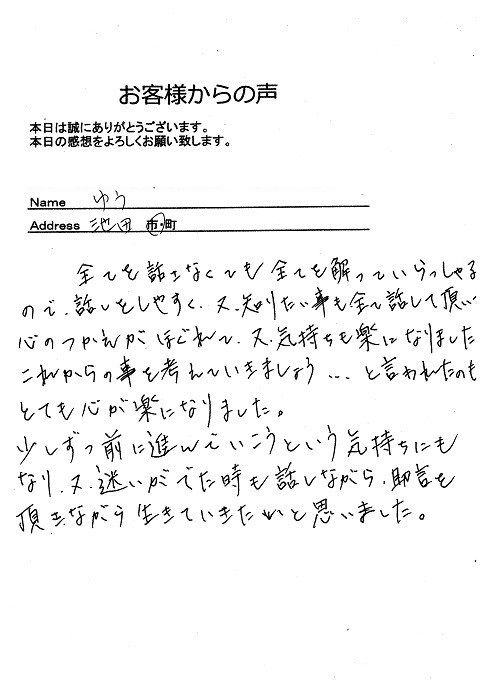 お客様からの声
本日は誠にありがとうございます。
本日の感想をよろしくお願い致します。
Name ゆう
Address 池田 市・町
全てを話さなくても全てを解っていらっしゃる
ので、話しをしやすく、又、知りたい事も全て話して頂い
心のつかえがほぐれて、又、気持ちも楽になりました
これからの事を考えていきましょう…と言われたのも
とても心が楽になりました。
少しずつ前に進んでいこうという気持ちにも
なり、又、迷いがでた時も話しながら、助言を
頂きながら生きていきたいと思いました。